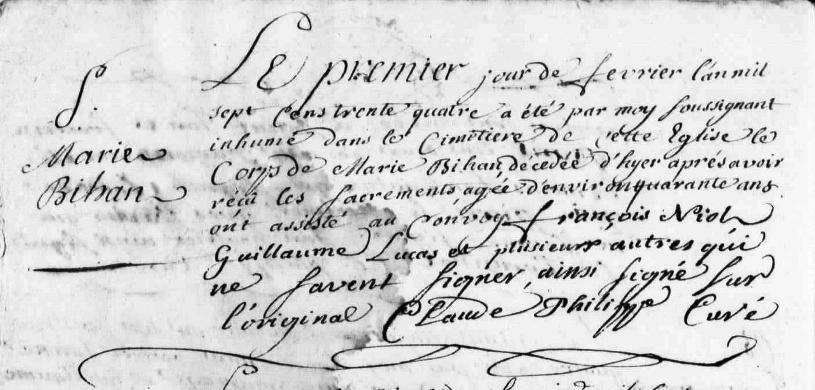 S.
Marie
Bihan
Le premier jour de fevrier l'an mil
sept cens trente quatre a été par moy soussignant
inhumé dans le Cimetiere de cette Eglise le
Corps de Marie Bihan, décedée d'hyer aprés avoir
récu les sacrements agée d'environ quarante ans
ont assisté au Convoy françois Niol
Guillaume Lucas et plusieurs autres qui
ne savent signer, ainsi signé sur
l'original Claude Philippe Curé